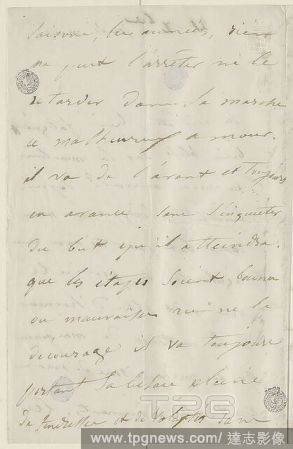 saisons, les années, rien
ne peut l'arrêter ni le
retarder dans sa marche
ce malheureux amour.
il va de l'avant et toujours
en avance sans s'inquiéter
du but qu'il atteindra.
que les étapes soient bonnes
ou mauvaises rien ne le
décourage il va toujours
portant sa besace pleine
de tendresse et de
TPG
www.tpgnews.com / 達志影像